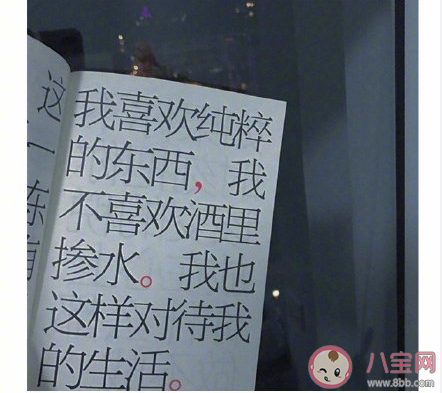 我喜欢纯粹
的东西，我
不喜欢酒里
掺水。我也
这样对待我
的生活。
这
一
东
八宝网
www.8bb.com